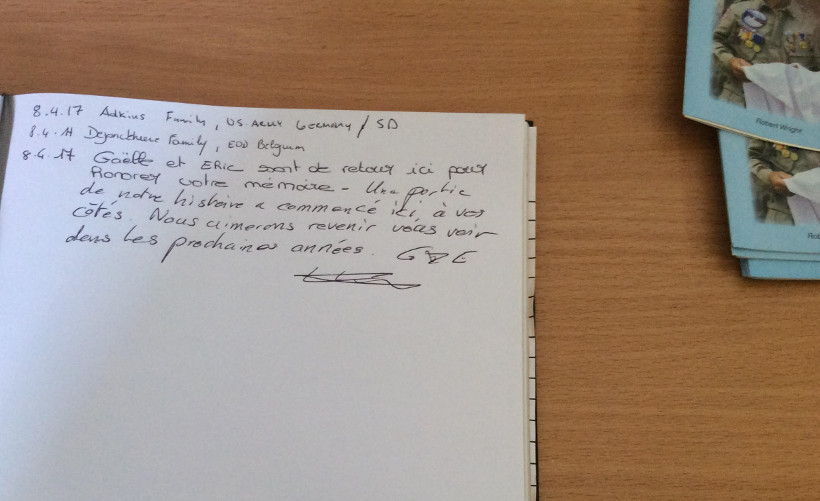 8.4.17 Adkins Family, US. Army Germany / SD
8.4.17 Dejonckheere Family, EOD Belgium
8.4.17 Gaëlle et Eric sont de retour ici pour
honorer votre mémoire - Une partie
de notre histoire a commencé ici, à vos
côtés. Nous aimerons revenir vous voir
dans les prochaines années. G & E
Robert Wright
Rob